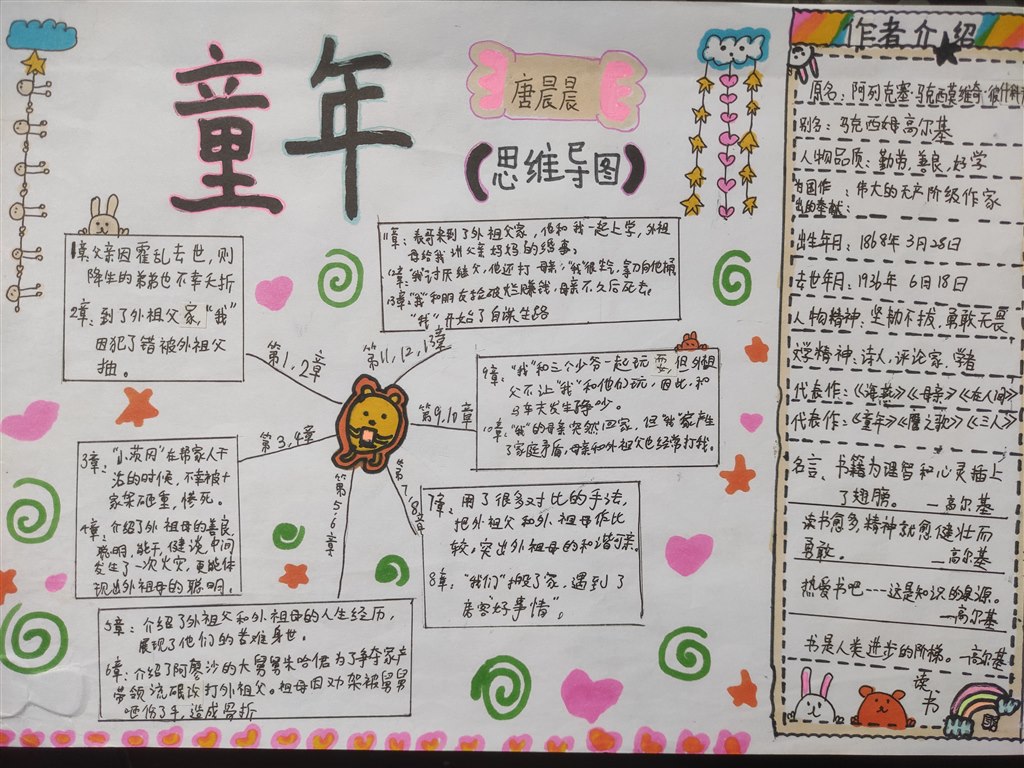 童年
唐晨晨
(思维导图)
1章:父亲因霍乱去世,则
降生的弟弟也不幸夭折
2章:到了外祖父家,"我"
因犯了错被外祖父
抽。
第1,2章
11章:表哥来到了外祖父家,他和我一起上学,外祖
母给我讲父亲妈妈的缘事。
12章:"我"讨厌继父,他还打母亲,"我"很生气,拿刀向他捅
13章:"我"和朋友捡破烂赚钱,母亲不久后死去,
"我"开始了自谋生路
第11,12,13章
9章:"我"和三个少爷一起玩耍,但外祖
父不让"我"和他们玩,因此,和
马车夫发生争吵。
10章:"我"的母亲突然回家,但"我"家产生
了家庭矛盾,母亲和外祖父也经常打我。
第9,10章
3章:"小茨冈"在帮家人干
活的时候,不幸被十
字架砸重,惨死。
4章:介绍了外祖母的善良,
聪明,能干,健谈,中间
发生了一次火灾,更能体
现出外祖母的聪明。
第3,4章
7章:用了很多对比的手法,
把外祖父和外祖母作比
较,突出外祖母的和谐可亲。
8章:"我们"搬了家,遇到了
房客"好事情"。
第7,8章
5章:介绍了外祖父和外祖母的人生经历,
展现了他们的苦难身世。
6章:介绍了阿廖沙的大舅舅米哈伊为了争夺家产
带领流氓改打外祖父。祖母因劝架被舅舅
砸伤了手,造成骨折
第5,6章
作者介绍
原名:阿列克塞·马克西莫维奇·彼什科
别名:马克西姆高尔基
人物品质:勤劳,善良,好学
为国作出的奉献:伟大的无产阶级作家
出生年月:1868年3月28日
去世年月:1936年6月18日
人物精神:坚韧不拔,勇敢无畏
文学精神:诗人,评论家,学者
代表作:《海燕》《母亲》《在人间》
代表作:《童年》《鹰之歌》《三人》
名言:书籍为理智和心灵插上
了翅膀。—高尔基
读书愈多,精神就愈健壮而
勇敢。—高尔基
热爱书吧---这是知识的泉源。
—高尔基
书是人类进步的阶梯。—高尔基
读
书